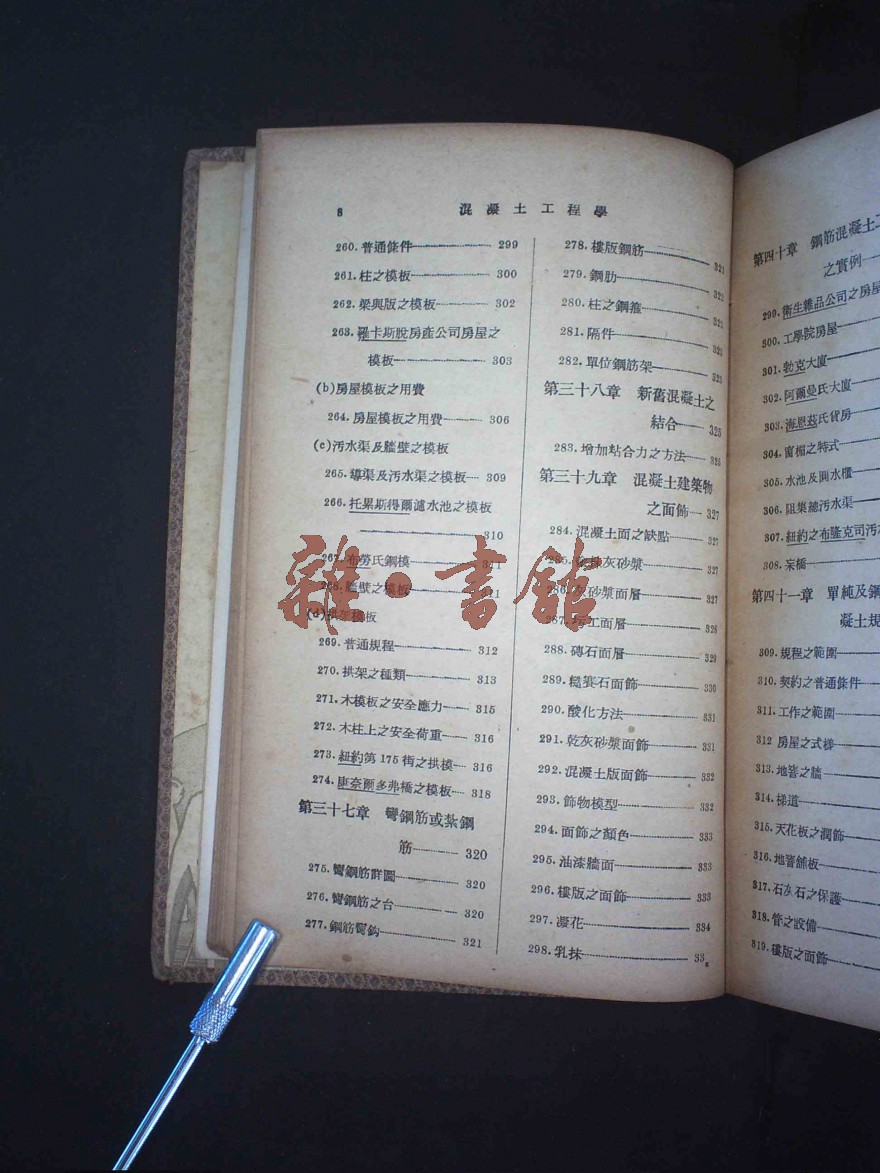 8 混凝土工程學
260.普通條件 299
261.柱之模板 300
262.梁與版之模板 302
263.羅卡斯脫房產公司房屋之
模板 303
(b)房屋模板之用費
264.房屋模板之用費 306
(c)汚水渠及牆壁之模板
265.導渠及汚水渠之模板 309
266.托累斯得爾濾水池之模板
310
267.布勞氏鋼模 311
268.牆壁之模板 311
(d)拱架模板
269.普通規程 312
270.拱架之種類 313
271.木模板之安全應力 315
272.木柱上之安全荷重 316
273.紐約第175街之拱模 316
274.唐奈爾多弗橋之模板 318
第三十七章 彎鋼筋或紮鋼
筋 320
275.彎鋼筋詳圖 320
276.彎鋼筋之台 320
277.鋼筋彎鈎 321
278.樓版鋼筋 321
279.鋼肋 322
280.柱之鋼箍 323
281.隔件 323
282.單位鋼筋架 323
第三十八章 新舊混凝土之
結合 325
283.增加粘合力之方法 325
第三十九章 混凝土建築物
之面飾 327
284.混凝土面之缺點 327
285.塗抹灰砂漿 327
286.灰砂漿面層 327
287.圬工面層 328
288.磚石面層 329
289.糙箕石面飾 330
290.酸化方法 331
291.乾灰砂漿面飾 331
292.混凝土版面飾 332
293.飾物模型 332
294.面飾之顏色 333
295.油漆牆面 333
296.樓版之面飾 333
297.凝花 334
298.乳抹 33
第四十章 鋼筋混凝土工
之實例
299.衛生雜品公司之房屋
300.工學院房屋
301.勃克大廈
302.阿爾曼氏大廈
303.海恩茲氏貨房
304.窗楣之特式
305.水池及圓水櫃
306.阻集總汚水渠
307.紐約之布隆克司汚
308.桬橋
第四十一章 單純及鋼
凝土規
309.規程之範圍
310.契約之普通條件
311.工作之範圍
312 房屋之式樣
313.地窖之牆
314.梯道
315.天花板之潤飾
316.地窖舖板
317.石灰石之保護
318.管之設備
319.樓版之面飾
雜·書館